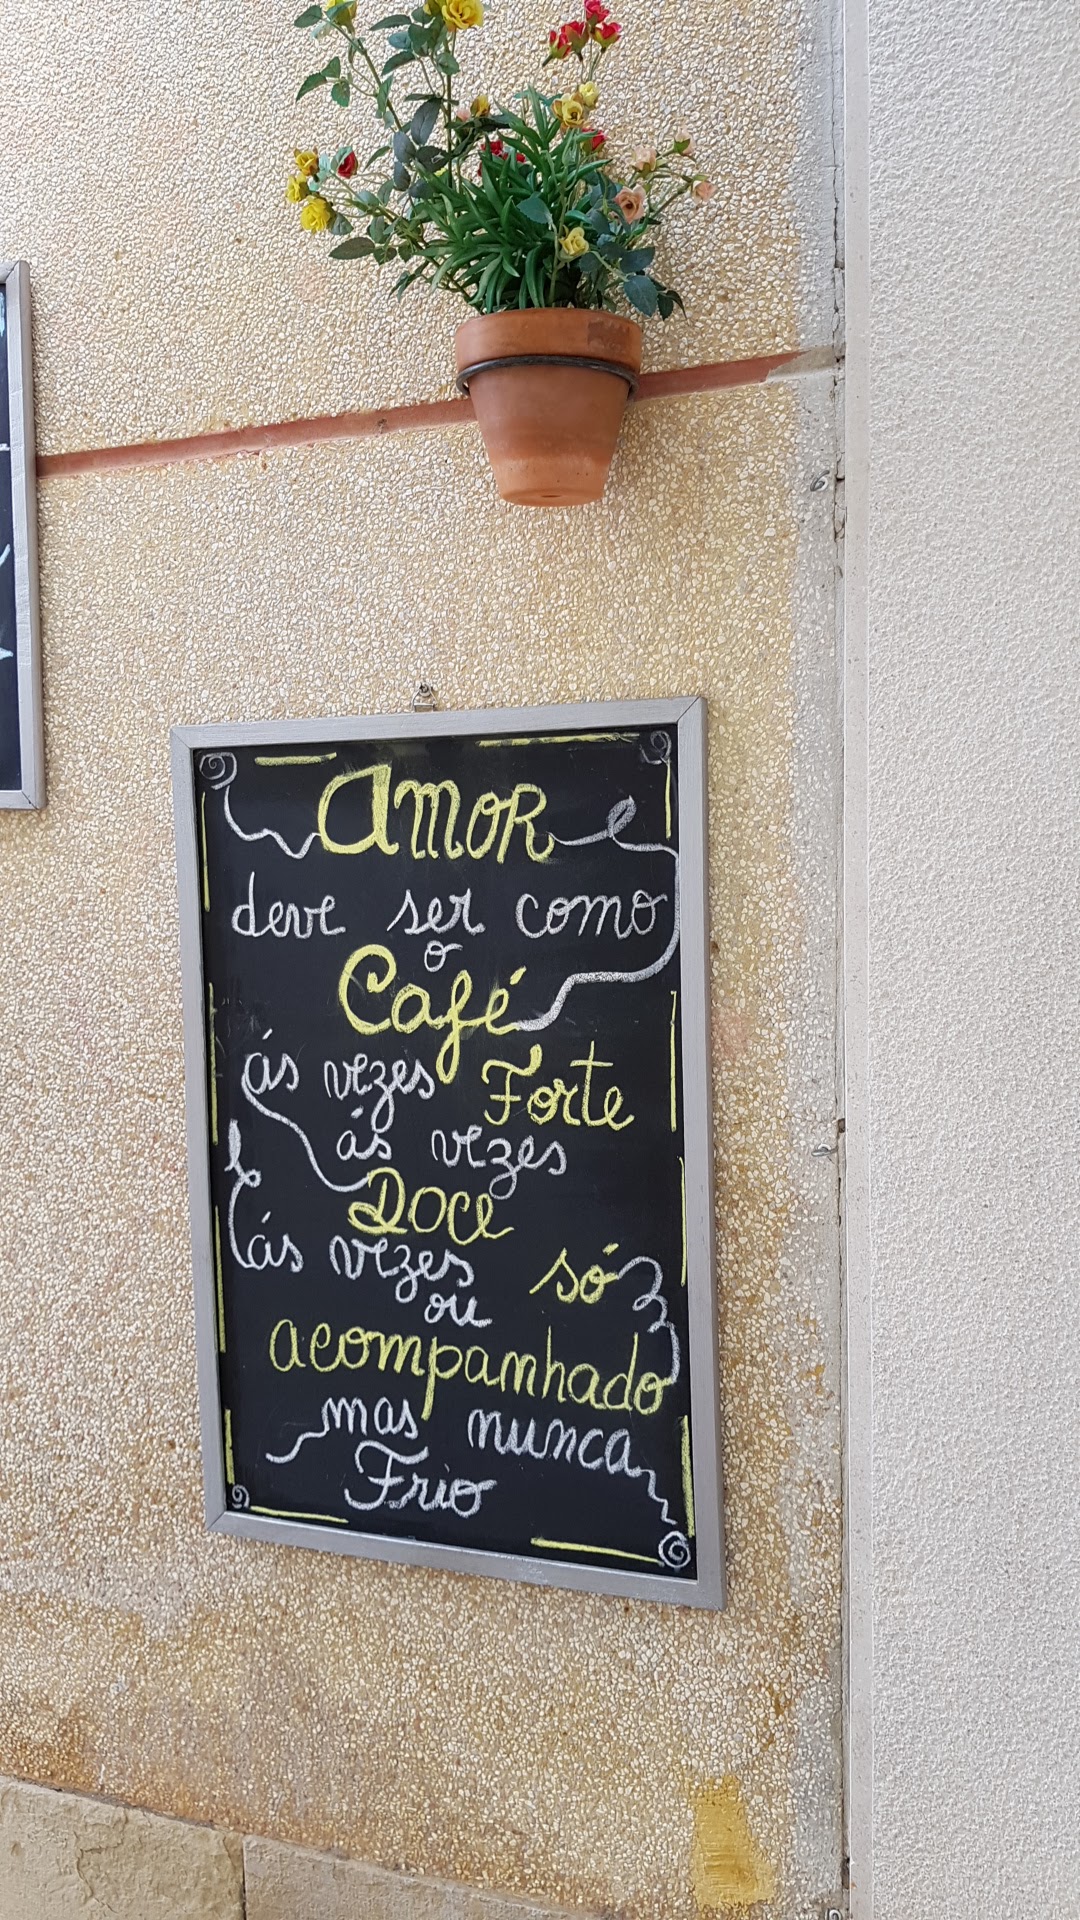 Amor
deve ser como
o
Café
ás vezes Forte
ás vezes
Doce
ás vezes só
ou
acompanhado
mas nunca
Frio